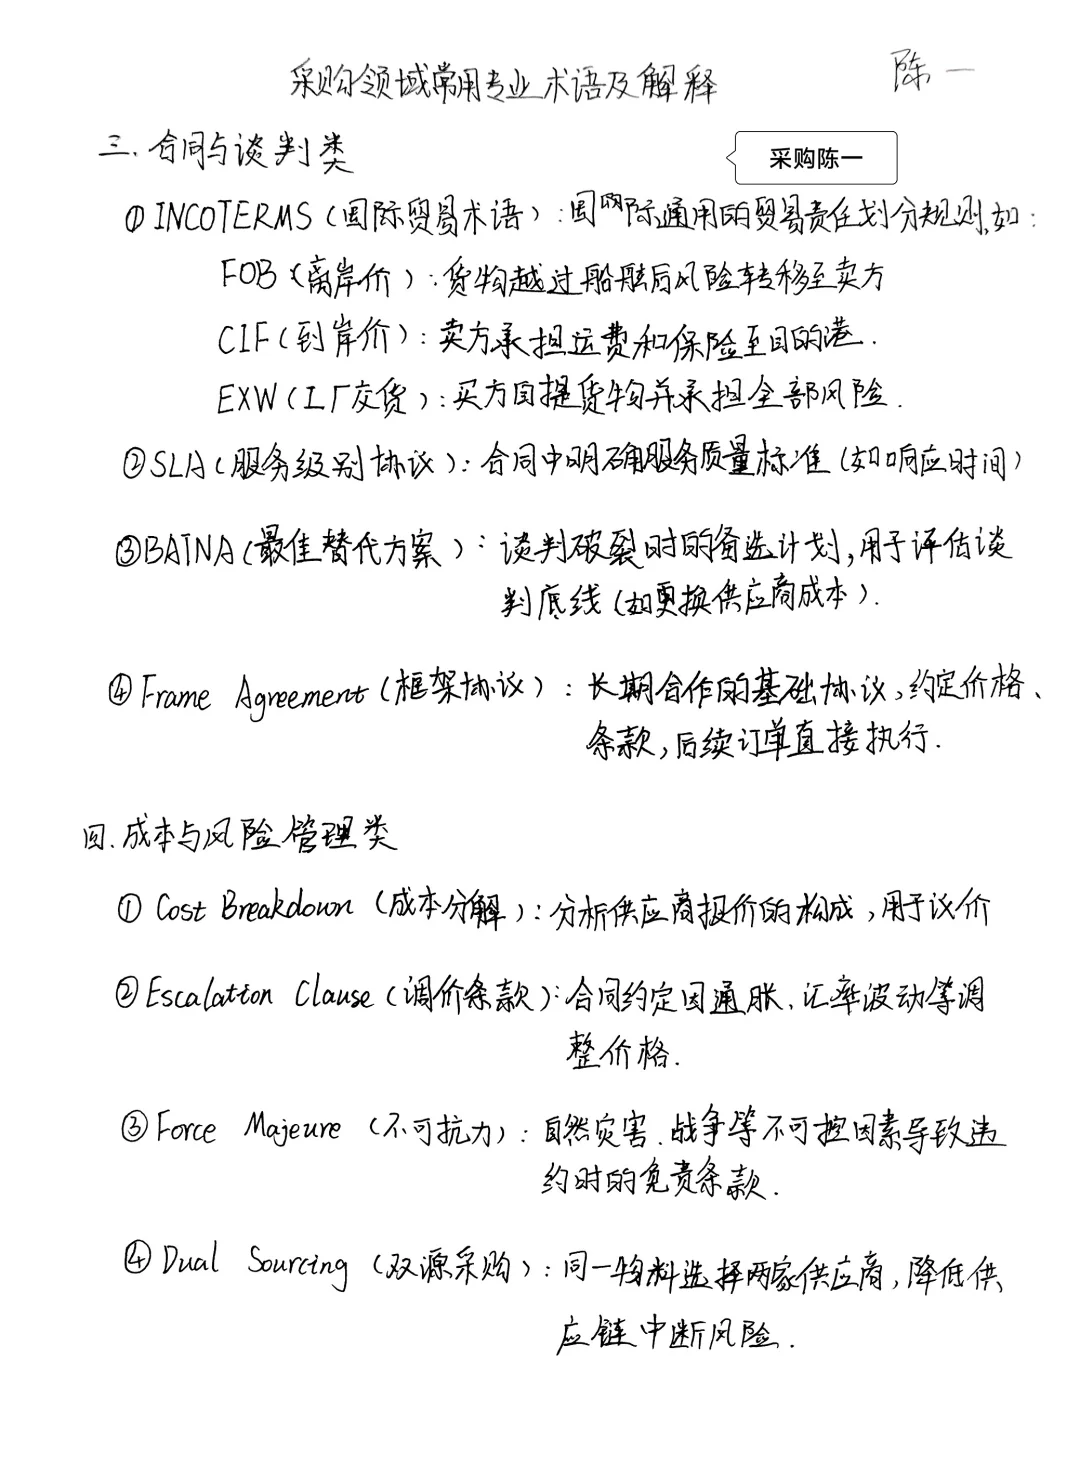 采购领域常用专业术语及解释
陈一
三、合同与谈判类
采购陈一
①INCOTERMS(国际贸易术语):国际通用的贸易责任划分规则,如:
FOB(离岸价):货物越过船舷后风险转移至卖方
CIF(到岸价):卖方承担运费和保险至目的港.
EXW(工厂交货):买方自提货物并承担全部风险.
②SLA(服务级别协议):合同中明确服务质量标准(如响应时间)
③BATNA(最佳替代方案):谈判破裂时的备选计划,用于评估谈
判底线(如更换供应商成本).
④Frame Agreement(框架协议):长期合作的基础协议,约定价格、
条款,后续订单直接执行.
四.成本与风险管理类
①Cost Breakdown(成本分解):分析供应商报价的构成,用于议价
②Escalation Clause(调价条款):合同约定因通胀、汇率波动等调
整价格.
③Force Majeure(不可抗力):自然灾害、战争等不可控因素导致违
约时的免责条款.
④Dual Sourcing(双源采购):同一物料选择两家供应商,降低供
应链中断风险.